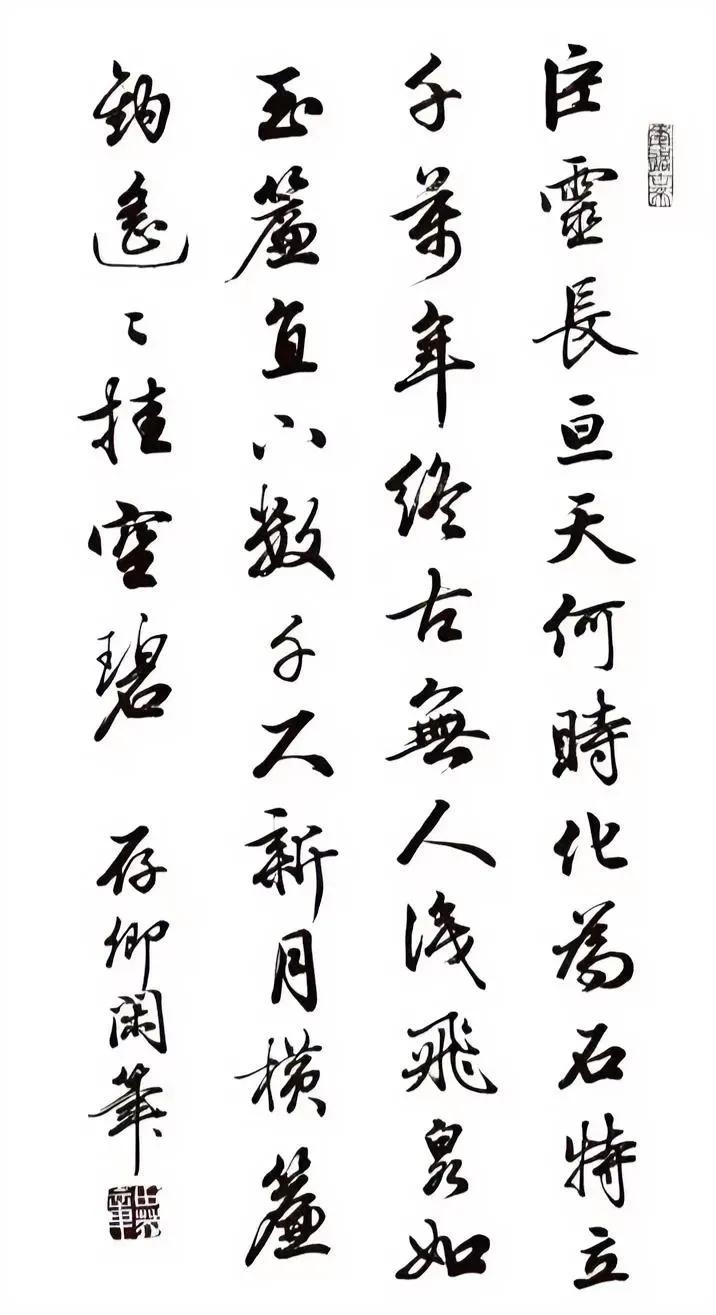 巨靈長亘天何時化為石特立
千萬年終古無人識飛泉如
玉簾直下数千尺新月横簾
鈎遙〻挂空碧
存卿閑筆